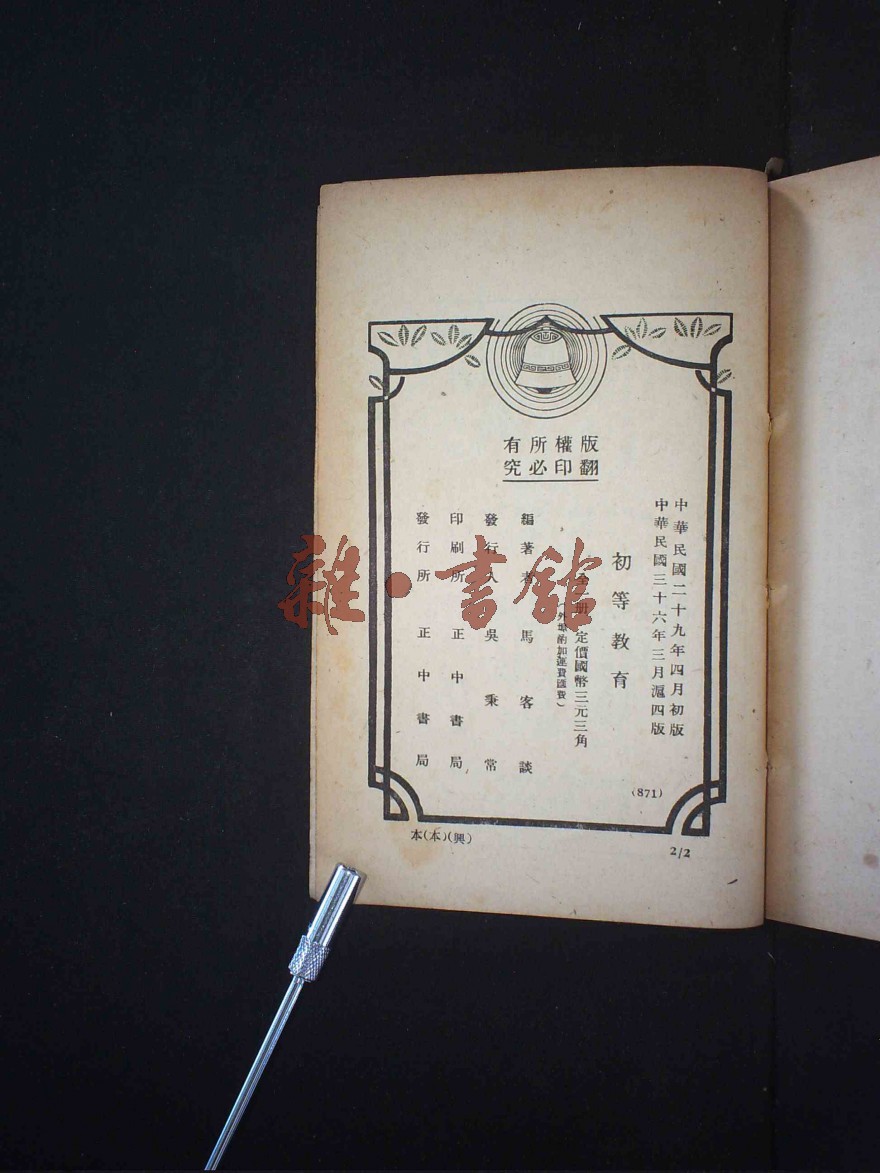 版權所有
翻印必究
中華民國二十九年四月初版
中華民國三十六年三月滬四版
初等教育
全一册 定價國幣三元三角
(外埠酌加運費匯費)
編著者 馬客談
發行人 吳秉常
印刷所 正中書局
發行所 正中書局
(871)
本(本)(興)
2/2
雜·書館